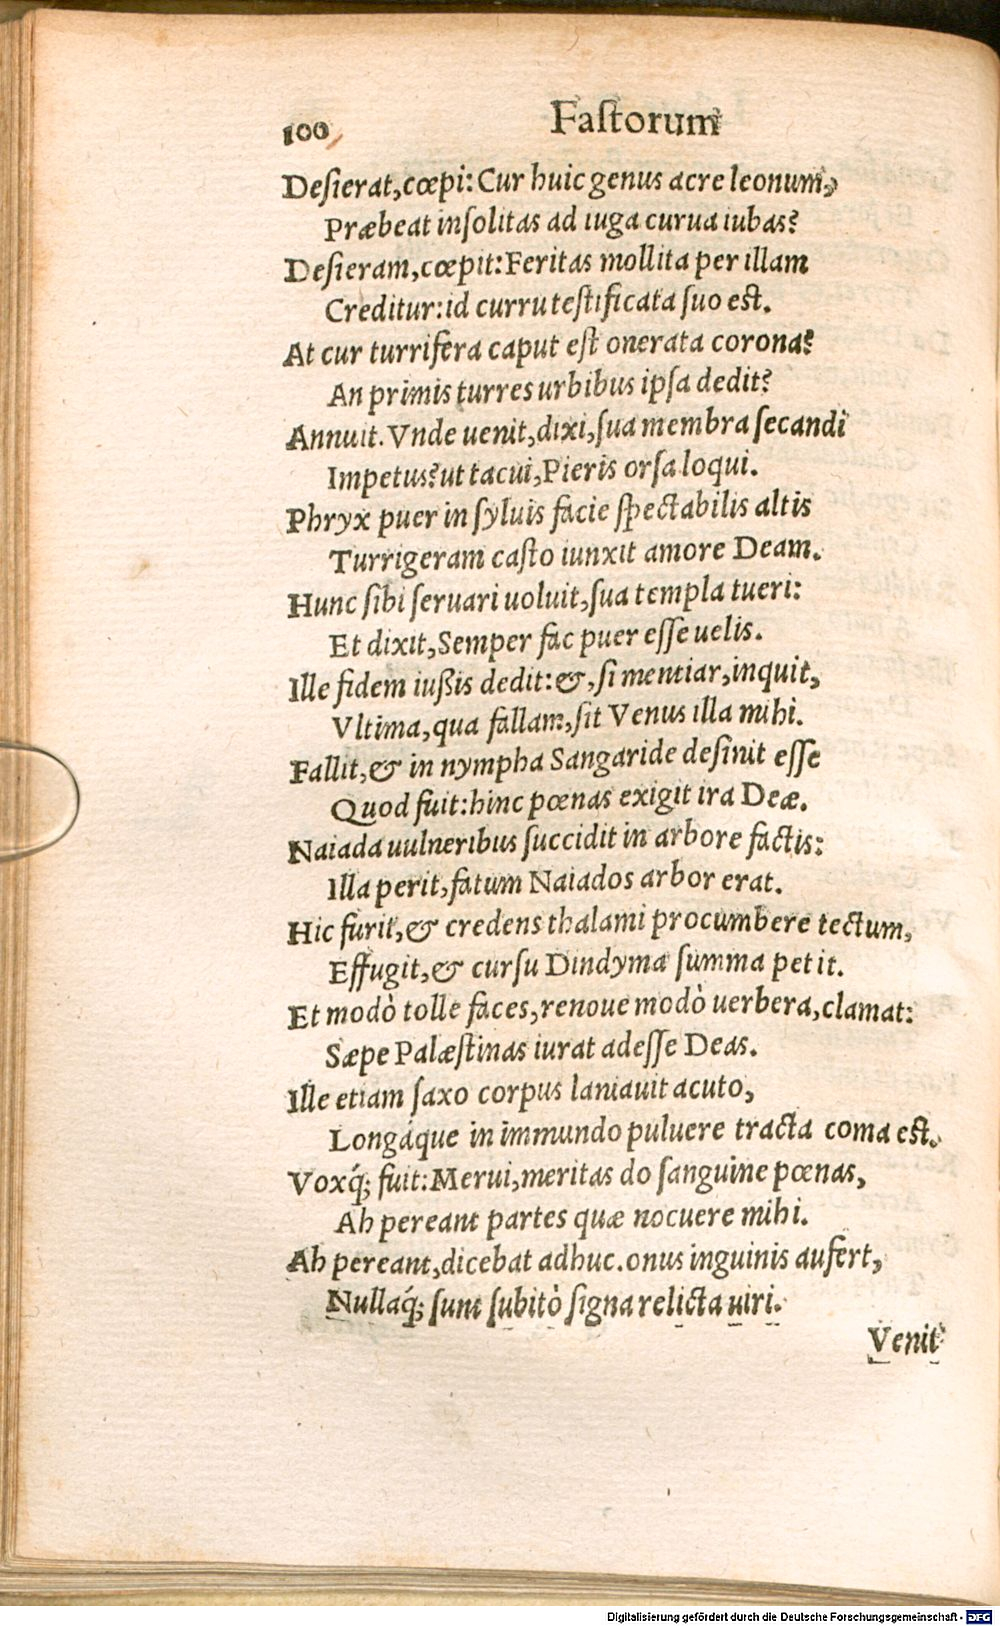 100 Faſtorum
Deſierat,cœpi: Cur huic genus acre leonum,
Præbeat inſolitas ad iuga curua iubas?
Deſieram,cœpit: Feritas mollita per illam
Creditur: id curru teſtificata ſuo eſt.
At cur turrifera caput eſt onerata corona?
An primis turres urbibus ipſa dedit?
Annuit. Vnde uenit,dixi,ſua membra ſecandi
Impetus? ut tacui,Pieris orſa loqui.
Phryx puer in ſyluis facie ſpectabilis altis
Turrigeram caſto iunxit amore Deam.
Hunc ſibi ſeruari uoluit,ſua templa tueri:
Et dixit,Semper fac puer eſſe uelis.
Ille fidem iuſsis dedit: &,ſi mentiar,inquit,
Vltima,qua fallam,ſit Venus illa mihi.
Fallit,& in nympha Sangaride deſinit eſſe
Quod fuit: hinc pœnas exigit ira Deæ.
Naiada uulneribus ſuccidit in arbore factis:
Illa perit,fatum Naiados arbor erat.
Hic furit,& credens thalami procumbere tectum,
Effugit,& curſu Dindyma ſumma petit.
Et modò tolle faces,renoue modò uerbera,clamat:
Sæpe Palæſtinas iurat adeſſe Deas.
Ille etiam ſaxo corpus laniauit acuto,
Longáque in immundo puluere tracta coma eſt.
Voxq́; fuit: Merui,meritas do ſanguine pœnas,
Ah pereant partes quæ nocuere mihi.
Ah pereant,dicebat adhuc. onus inguinis aufert,
Nullaq́; ſunt ſubitò ſigna relicta uiri.
Venit
Digitalisierung gefördert durch die Deutsche Forschungsgemeinschaft - DFG